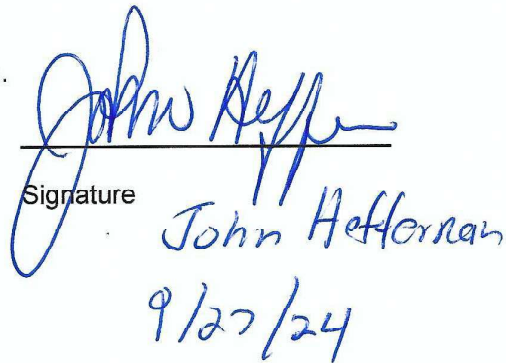 John Heffe
Signature
John Heffernan
9/27/24